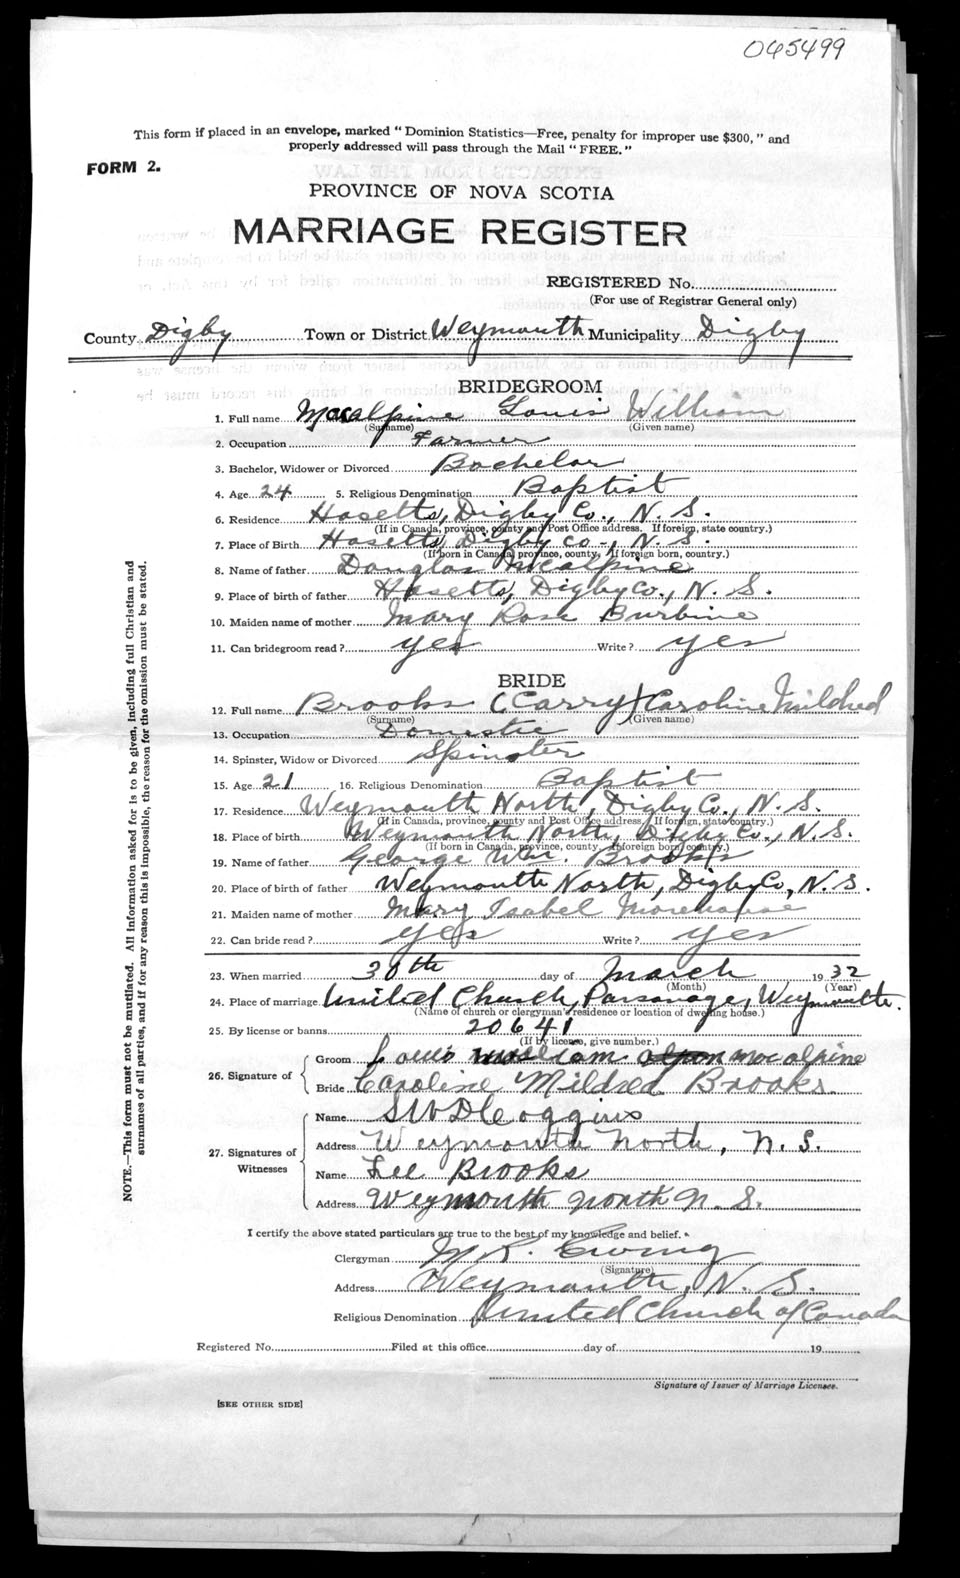 065499
This form if placed in an envelope, marked "Dominion Statistics—Free, penalty for improper use $300," and
properly addressed will pass through the Mail "FREE."
FORM 2.
PROVINCE OF NOVA SCOTIA
MARRIAGE REGISTER
REGISTERED No.
(For use of Registrar General only)
County Digby Town or District Weymouth Municipality Digby
BRIDEGROOM
1. Full name Macalpine Louis William
(Surname) (Given name)
2. Occupation Farmer
3. Bachelor, Widower or Divorced Bachelor
4. Age 24 5. Religious Denomination Baptist
6. Residence Hasetts, Digby Co., N. S.
(If in Canada, province, county and Post Office address. If foreign, state country.)
7. Place of Birth Hasetts, Digby Co., N. S.
(If born in Canada, province, county, If foreign born, country.)
8. Name of father Douglas Mcalpine
9. Place of birth of father Hasetts, Digby Co., N. S.
10. Maiden name of mother Mary Rose Burbine
11. Can bridegroom read? yes Write? yes
BRIDE
12. Full name Brooks (Carry) Caroline Mildred
(Surname) (Given name)
13. Occupation Domestic
14. Spinster, Widow or Divorced Spinster
15. Age 21 16. Religious Denomination Baptist
17. Residence Weymouth North, Digby Co., N. S.
(If in Canada, province, county and Post Office address, If foreign, state country.)
18. Place of birth Weymouth North, Digby Co., N. S.
(If born in Canada, province, county, If foreign born, country.)
19. Name of father George Wm. Brooks
20. Place of birth of father Weymouth North, Digby Co., N. S.
21. Maiden name of mother Mary Isabel Morehouse
22. Can bride read? yes Write? yes
23. When married 30th day of March 1932
(Month) (Year)
24. Place of marriage United Church, Parsonage, Weymouth.
(Name of church or clergyman's residence or location of dwelling house.)
25. By license or banns 20641
(If by license, give number.)
26. Signature of
Groom Louis william macalpine
Bride Caroline Mildred Brooks.
27. Signatures of Witnesses
Name SWD Coggins
Address Weymouth North, N. S.
Name Lee Brooks
Address Weymouth North N. S.
I certify the above stated particulars are true to the best of my knowledge and belief.
Clergyman R. Ewing
(Signature)
Address Weymouth, N. S.
Religious Denomination United Church of Canada
Registered No. Filed at this office day of 19
Signature of Issuer of Marriage Licenses.
[SEE OTHER SIDE]
NOTE.—This form must not be mutilated. All information asked for is to be given, including full Christian and
surnames of all parties, and if for any reason this is impossible, the reason for the omission must be stated.